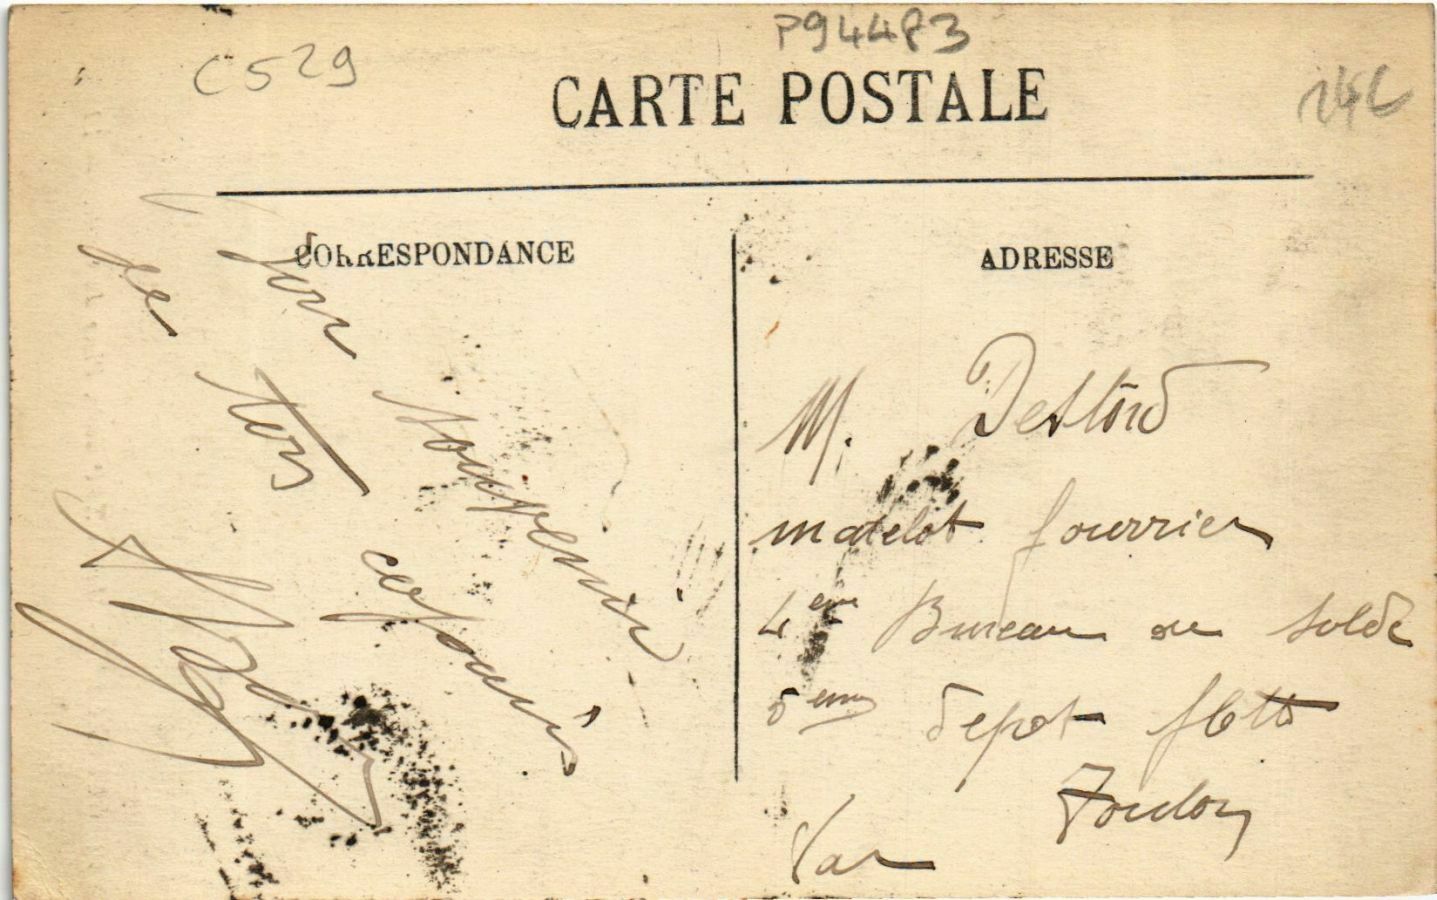 C529
P94483
CARTE POSTALE
CORRESPONDANCE
Bon souvenir
de ton copain
ADRESSE
M.
matelot fourrier
4eme Bureau ou solde
5eme depot
Toulon
Var